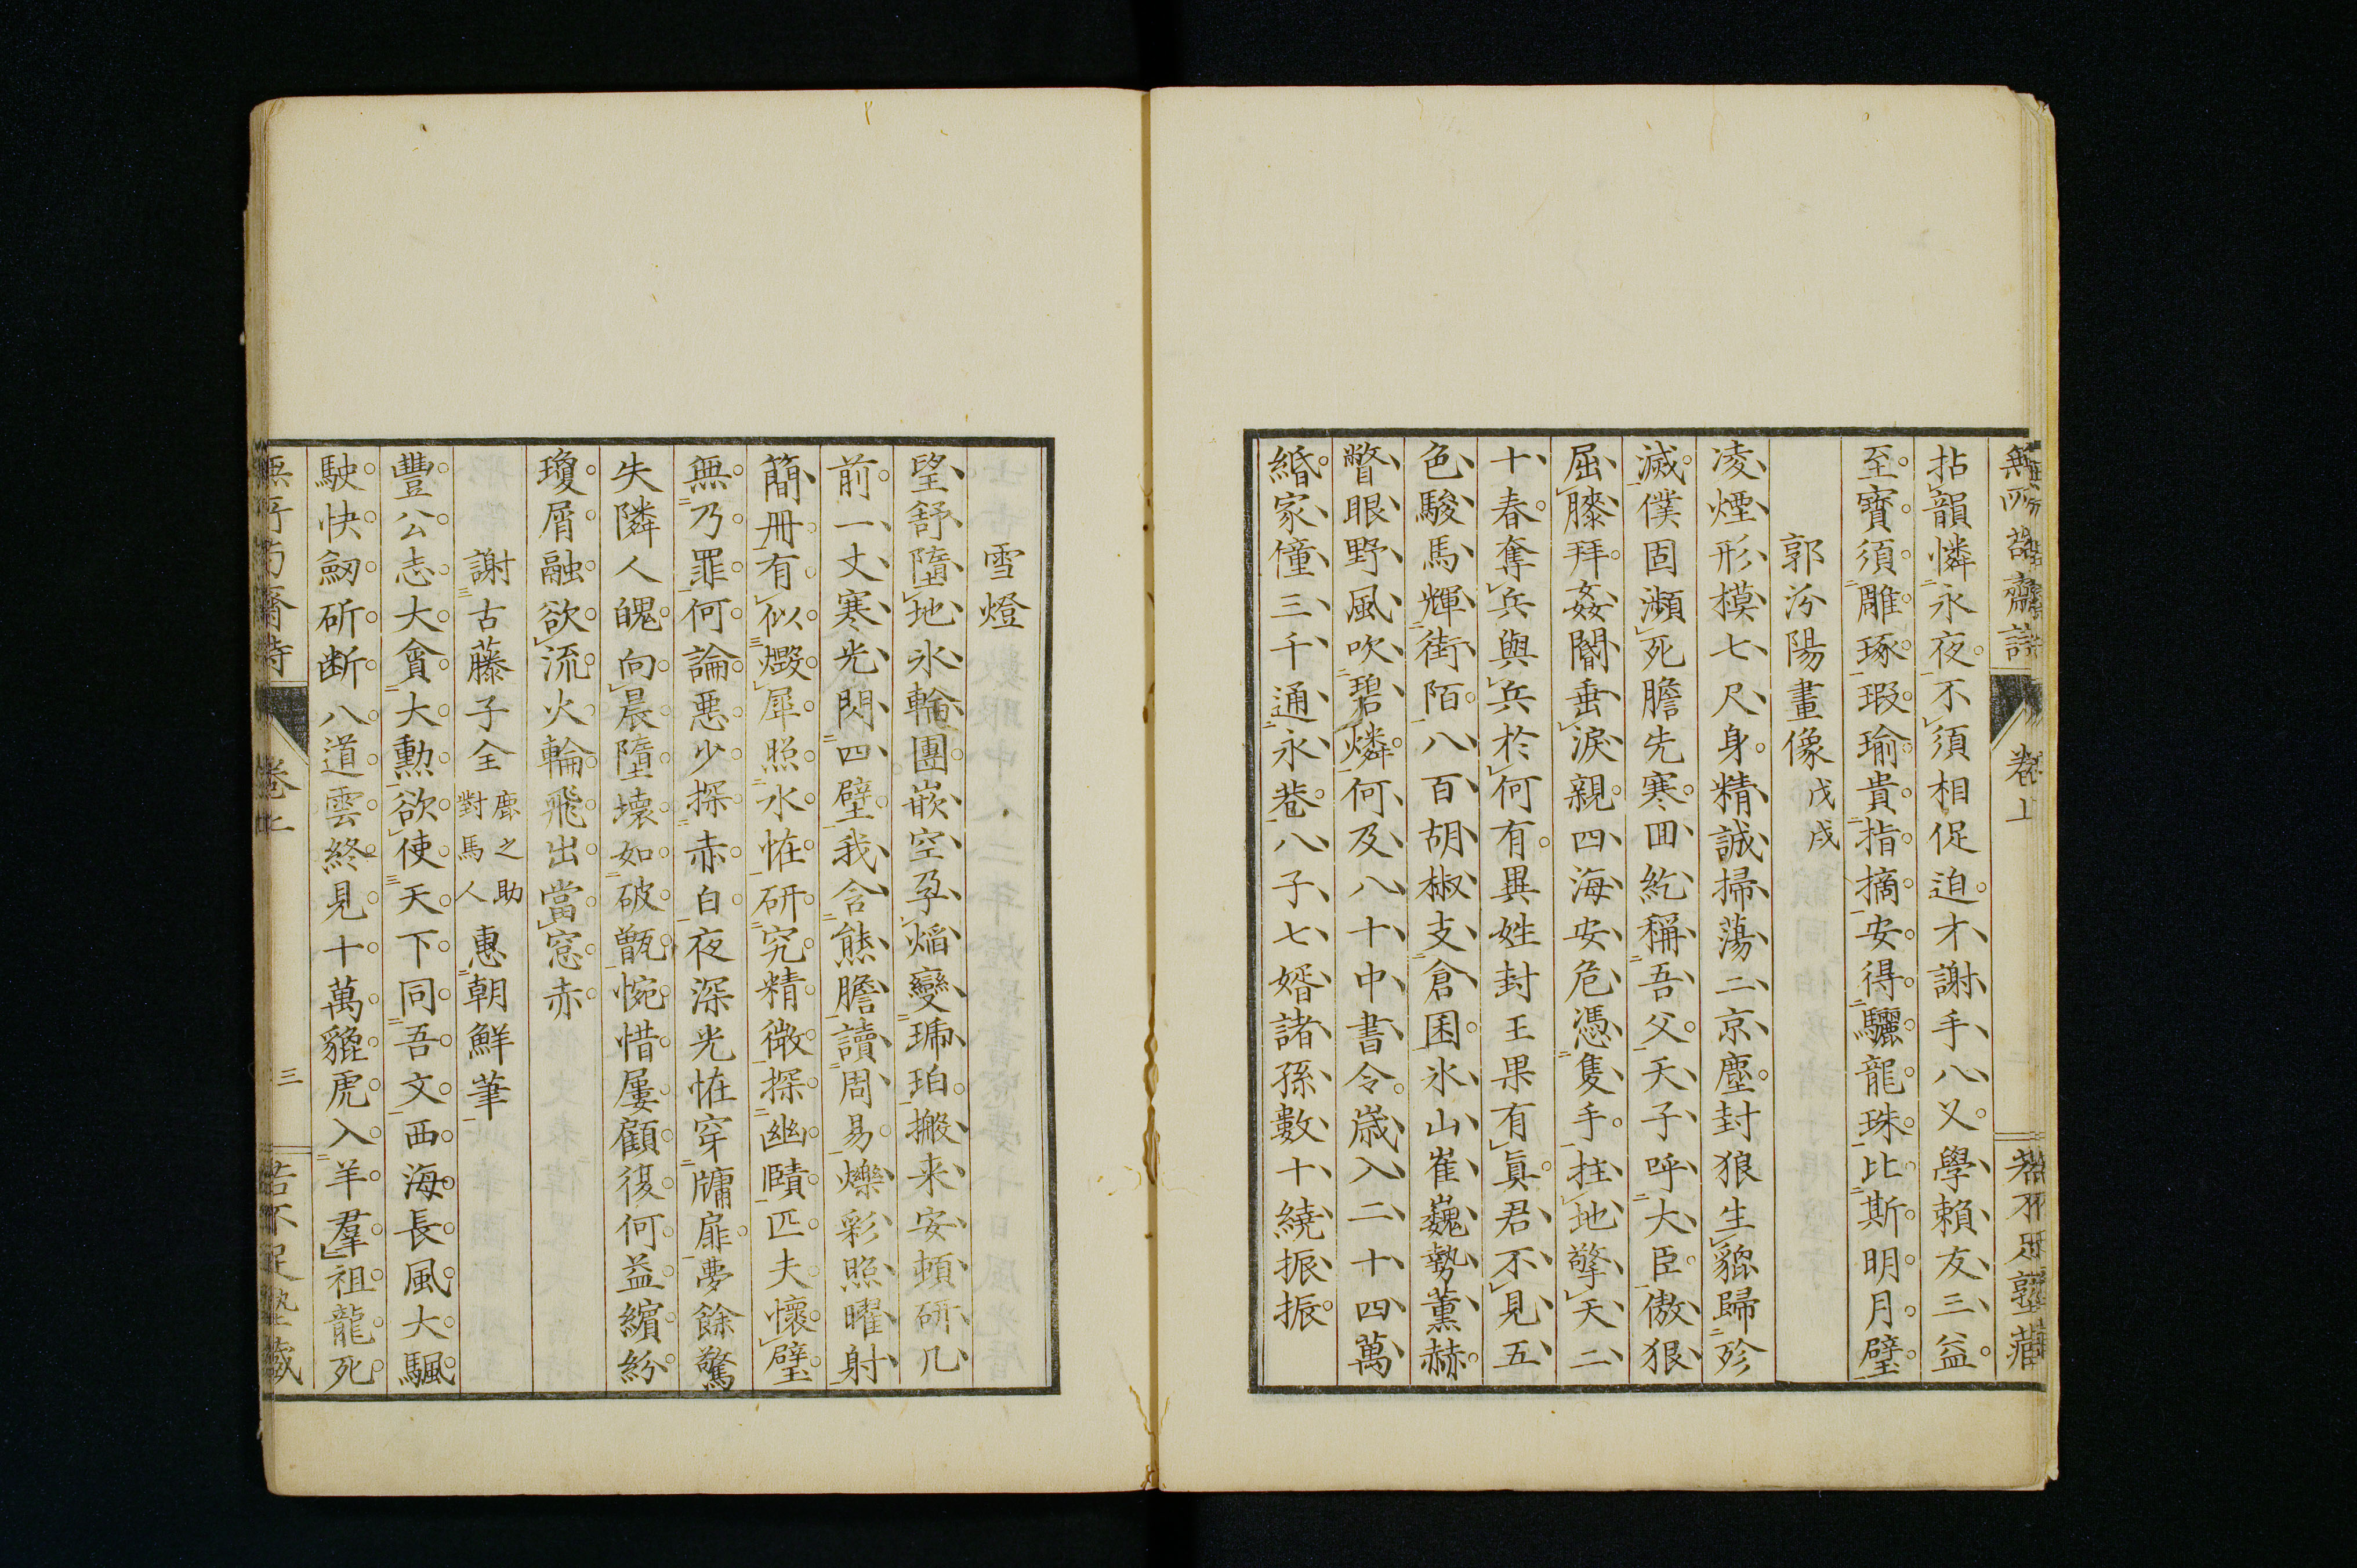 拈韻憐永夜不須相促迫才謝手八叉學賴友三益
至寳須雕琢瑕瑜貴指摘安得驪龍珠比斯明月璧
郭汾陽畫像戊戌
凌煙形模七尺身精誠掃蕩二京塵封狼生貔歸殄
滅僕固瀕死膽先寒回紇稱吾父天子呼大臣傲狠
屈膝拜姦閹垂淚親四海安危憑隻手拄地擎天二
十春奪兵與兵於何有異姓封王果有真君不見五
色駿馬輝街陌八百胡椒支倉囷氷山崔巍勢薰赫
瞥眼野風吹碧燐何及八十中書令歳入二十四萬
緡家僮三千通永巷八子七婿諸孫數十繞振振
卷上
雪燈
望舒墮地氷輪團嵌空孕焰變琥珀搬来安頓研几
前一丈寒光閃四壁我含熊膽讀周易爍彩照曜射
簡冊有似燬犀照水恠研究精微探幽賾匹夫懷璧
無乃罪何論悪少探赤白夜深光恠穿牗扉夢餘驚
失隣人醜向晨墮壊如破甑惋惜屢顧復何益繽紛
瓊屑融欲流火輪飛出當窓赤
謝古藤子全鹿之助對馬人惠朝鮮筆
豐公志大貪大勲欲使天下同吾文西海長風大颿
駛快劒斫断八道雲終見十萬貔虎入羊羣祖龍死
卷上
三